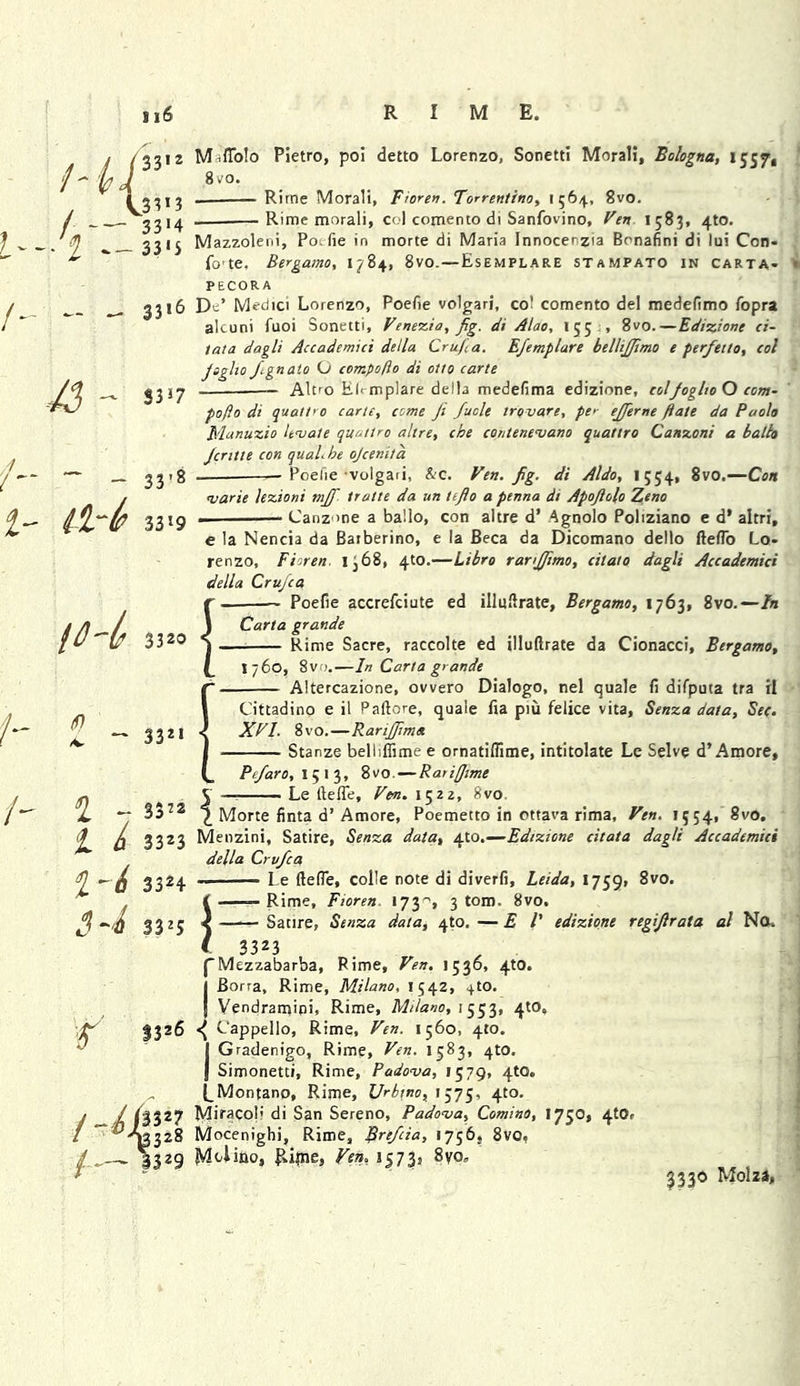 116 R I M E.
1-6 3312 Maſſolo Pietro, poi detto Lorenzo, Sonetti Morali, Bologna, 1557,
8vo.
3313 ——— Rime Morali, Fioren. Torrentino, 1564, 8vo.
1-- 3314 ——— Rime morali, col comento di Sanſovino, Ven. 1583, 4to.
2-- 3315 Mazzoleni, Poeſie in morte di Maria Innocenzia Bonafini di lui Con-
ſorte, Bergamo, 1784, 8vo.—ESEMPLARE STAMPATO IN CARTA-
PECORA
1-- 3316 De' Medici Lorenzo, Poeſie volgari, col comento del medeſimo ſopra
alcuni ſuoi Sonetti, Venezia, fig. di Aldo, 155 , 8vo.—Edizione ci-
tata dagli Accademici della Cruſca. Eſemplare belliſſimo e perfetto, col
foglio ſegnato O compoſto di otto carte
13 - 3317 ——— Altro Eſemplare della medeſima edizione, col foglio O com-
poſto di quattro carte, come ſi ſuole trovare, per eſſerne ſtate da Paolo
Manuzio levate quattro altre, che contenevano quattro Canzoni a ballo
ſcritte con qualche oſcenità
1-- 3318 ——— Poeſie volgari, &c. Ven. fig. di Aldo, 1554, 8vo.—Con
varie lezioni mſſ. tratte da un teſto a penna di Apoſtolo Zeno
2- 12-6 3319 ——— Canzone a ballo, con altre d' Agnolo Poliziano e d' altri,
e la Nencia da Barberino, e la Beca da Dicomano dello ſteſſo Lo-
renzo, Fioren. 1568, 4to.—Libro rariſſimo, citato dagli Accademici
della Cruſca
——— Poeſie accreſciute ed illuſtrate, Bergamo, 1763, 8vo.—In
Carta grande
10-6 3320 ——— Rime Sacre, raccolte ed illuſtrate da Cionacci, Bergamo,
1760, 8vo.—In Carta grande
——— Altercazione, ovvero Dialogo, nel quale ſi diſputa tra il
Cittadino e il Paſtore, quale ſia più felice vita, Senza data, Sec.
1- 2 - 3321 XVI. 8vo.—Rariſſima
——— Stanze belliſſime e ornatiſſime, intitolate Le Selve d' Amore,
Peſaro, 1513, 8vo.—Rariſſime
1- 2 - 3322 ——— Le ſteſſe, Ven. 1522, 8vo.
Morte finta d' Amore, Poemetto in ottava rima, Ven. 1554, 8vo.
2 6 3323 Menzini, Satire, Senza data, 4to.—Edizione citata dagli Accademici
della Cruſca
2-6 3324 ——— Le ſteſſe, colle note di diverſi, Leida, 1759, 8vo.
——— Rime, Fioren. 173 , 3 tom. 8vo.
3-6 3325 ——— Satire, Senza data, 4to. — E l' edizione regiſtrata al No.
3323
Mezzabarba, Rime, Ven. 1536, 4to.
Borra, Rime, Milano, 1542, 4to.
Vendramini, Rime, Milano, 1553, 4to.
3326 Cappello, Rime, Ven. 1560, 4to.
Gradenigo, Rime, Ven. 1583, 4to.
Simonetti, Rime, Padova, 1579, 4to.
Montano, Rime, Urbino, 1575, 4to.
1-6 3327 Miracoli di San Sereno, Padova, Comino, 1750, 4to.
3328 Mocenighi, Rime, Breſcia, 1756, 8vo,
1-- 3329 Molino, Rime, Ven. 1573, 8vo.
3330 Molza,